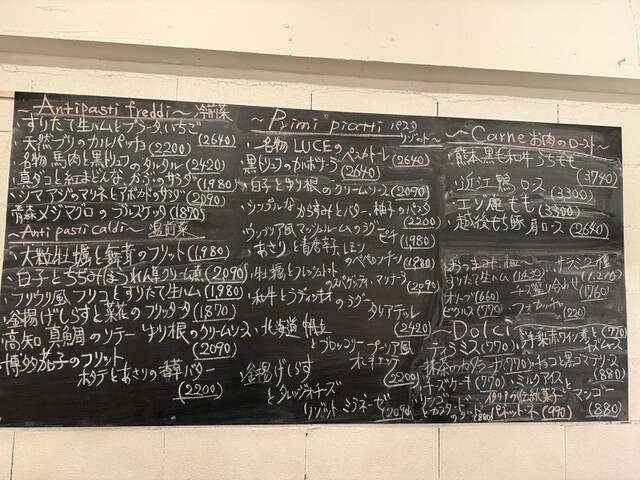 ~Antipasti freddi~ 冷前菜
・すりたて生ハムとブラータ、いちご (2640)
・天然ブリのカルパッチョ (2200)
・名物 馬肉と黒トリュフのタルタル (2420)
・真ダコと紅まどんな かぶのサラダ (1980)
・シマアジのマリネとアボカドのサラダ (2090)
・青森メジマグロのブルスケッタ (1870)
~Antipasti caldi~ 温前菜
・大粒牡蠣と舞茸のフリット (1980)
・白子とちぢみほうれん草クリーム煮 (2090)
・フリウリ風 フリコとすりたて生ハム (1980)
・釜揚げしらすと菜花のフリッタータ (1870)
・高知 真鯛のソテー ゆり根のクリームソース (2090)
・博多茄子のフリット
ホタテとあさりの香草バター (2200)
~Primi piatti パスタ リゾット~
・名物 LUCEのペスカトーレ (2640)
・黒トリュフのカルボナーラ (2640)
・白子とゆり根のクリームソース (2090)
・シンプルな からすみとバター、柚子のパスタ (2200)
マッシュルームの
・あさりと青唐辛子、レモン
のペペロンチーノ (1980)
・牡蠣とフレッシュトマト
のスパゲッティ・マリナーラ (2090)
・和牛とラディッキオのラグー
タリアテッレ (2420)
・北海道 帆立
とブロッコリー プーリア風
オレキエッテ (2200)
・釜揚げしらす
とタレッジオチーズ
リゾット ミラネーゼ (2090)
~Carne お肉のロースト~
・熊本黒毛和牛 うちもも (3740)
・近江鴨ロス (3300)
・エゾ鹿もも (3300)
・越後もち豚 肩ロス (2640)
おつまみ
・すりたて生ハム (1430)
・オリーブ (660)
・ピクルス (770)
・チーズ盛り合わせ (1760)
・フォカッチャ (220)
~Dolci~
・ティラミス (770)
・抹茶のカタラーナ (770)
・チーズケーキ (770)
・洋梨赤ワイン煮と (770)
・チョコと黒ゴマテリーヌ (880)
・ミルクアイスと マンゴー (880)
・リンゴ (880)
・イタリアの伝統菓子 (990)